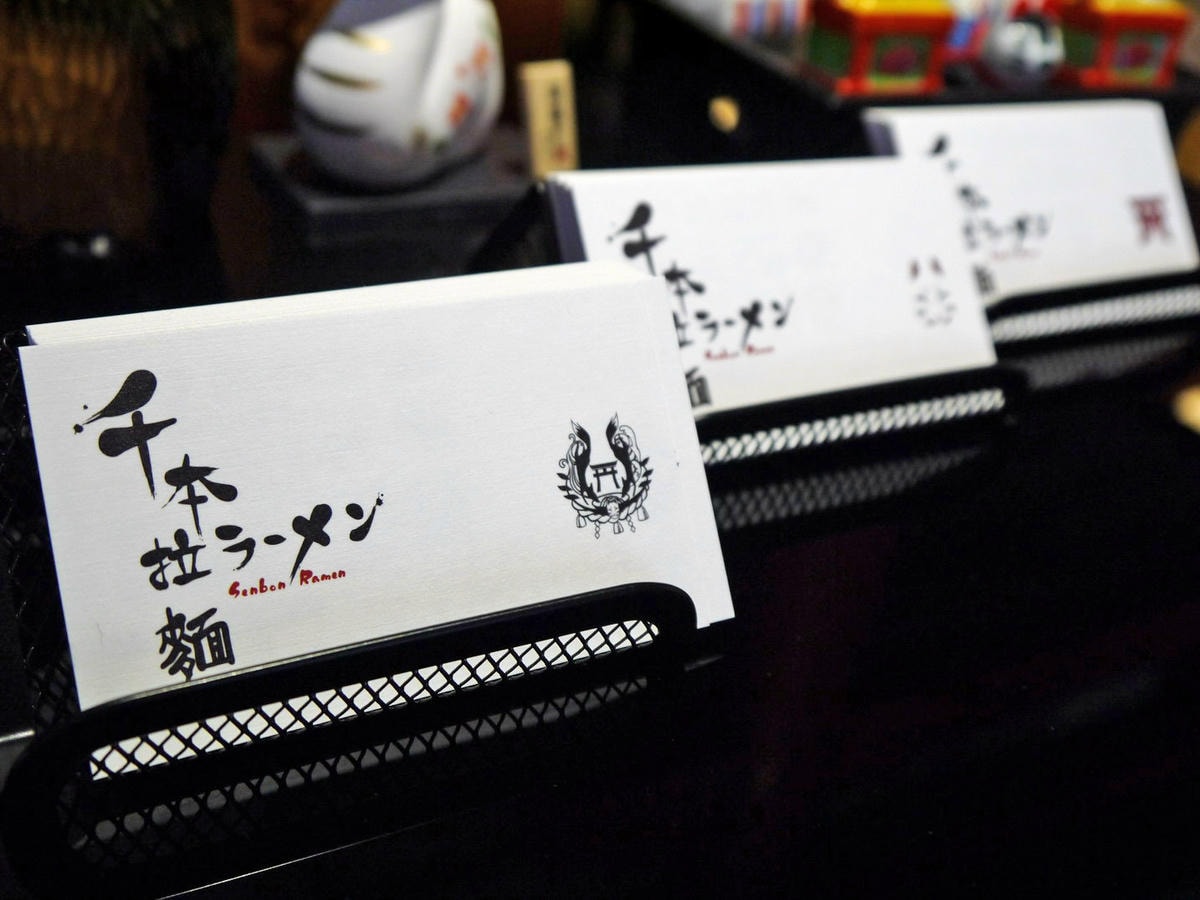 千本拉麵
ラーメン
Senbon Ramen
千本拉麵
ラーメン
Senbon Ramen
千本
ラーメン